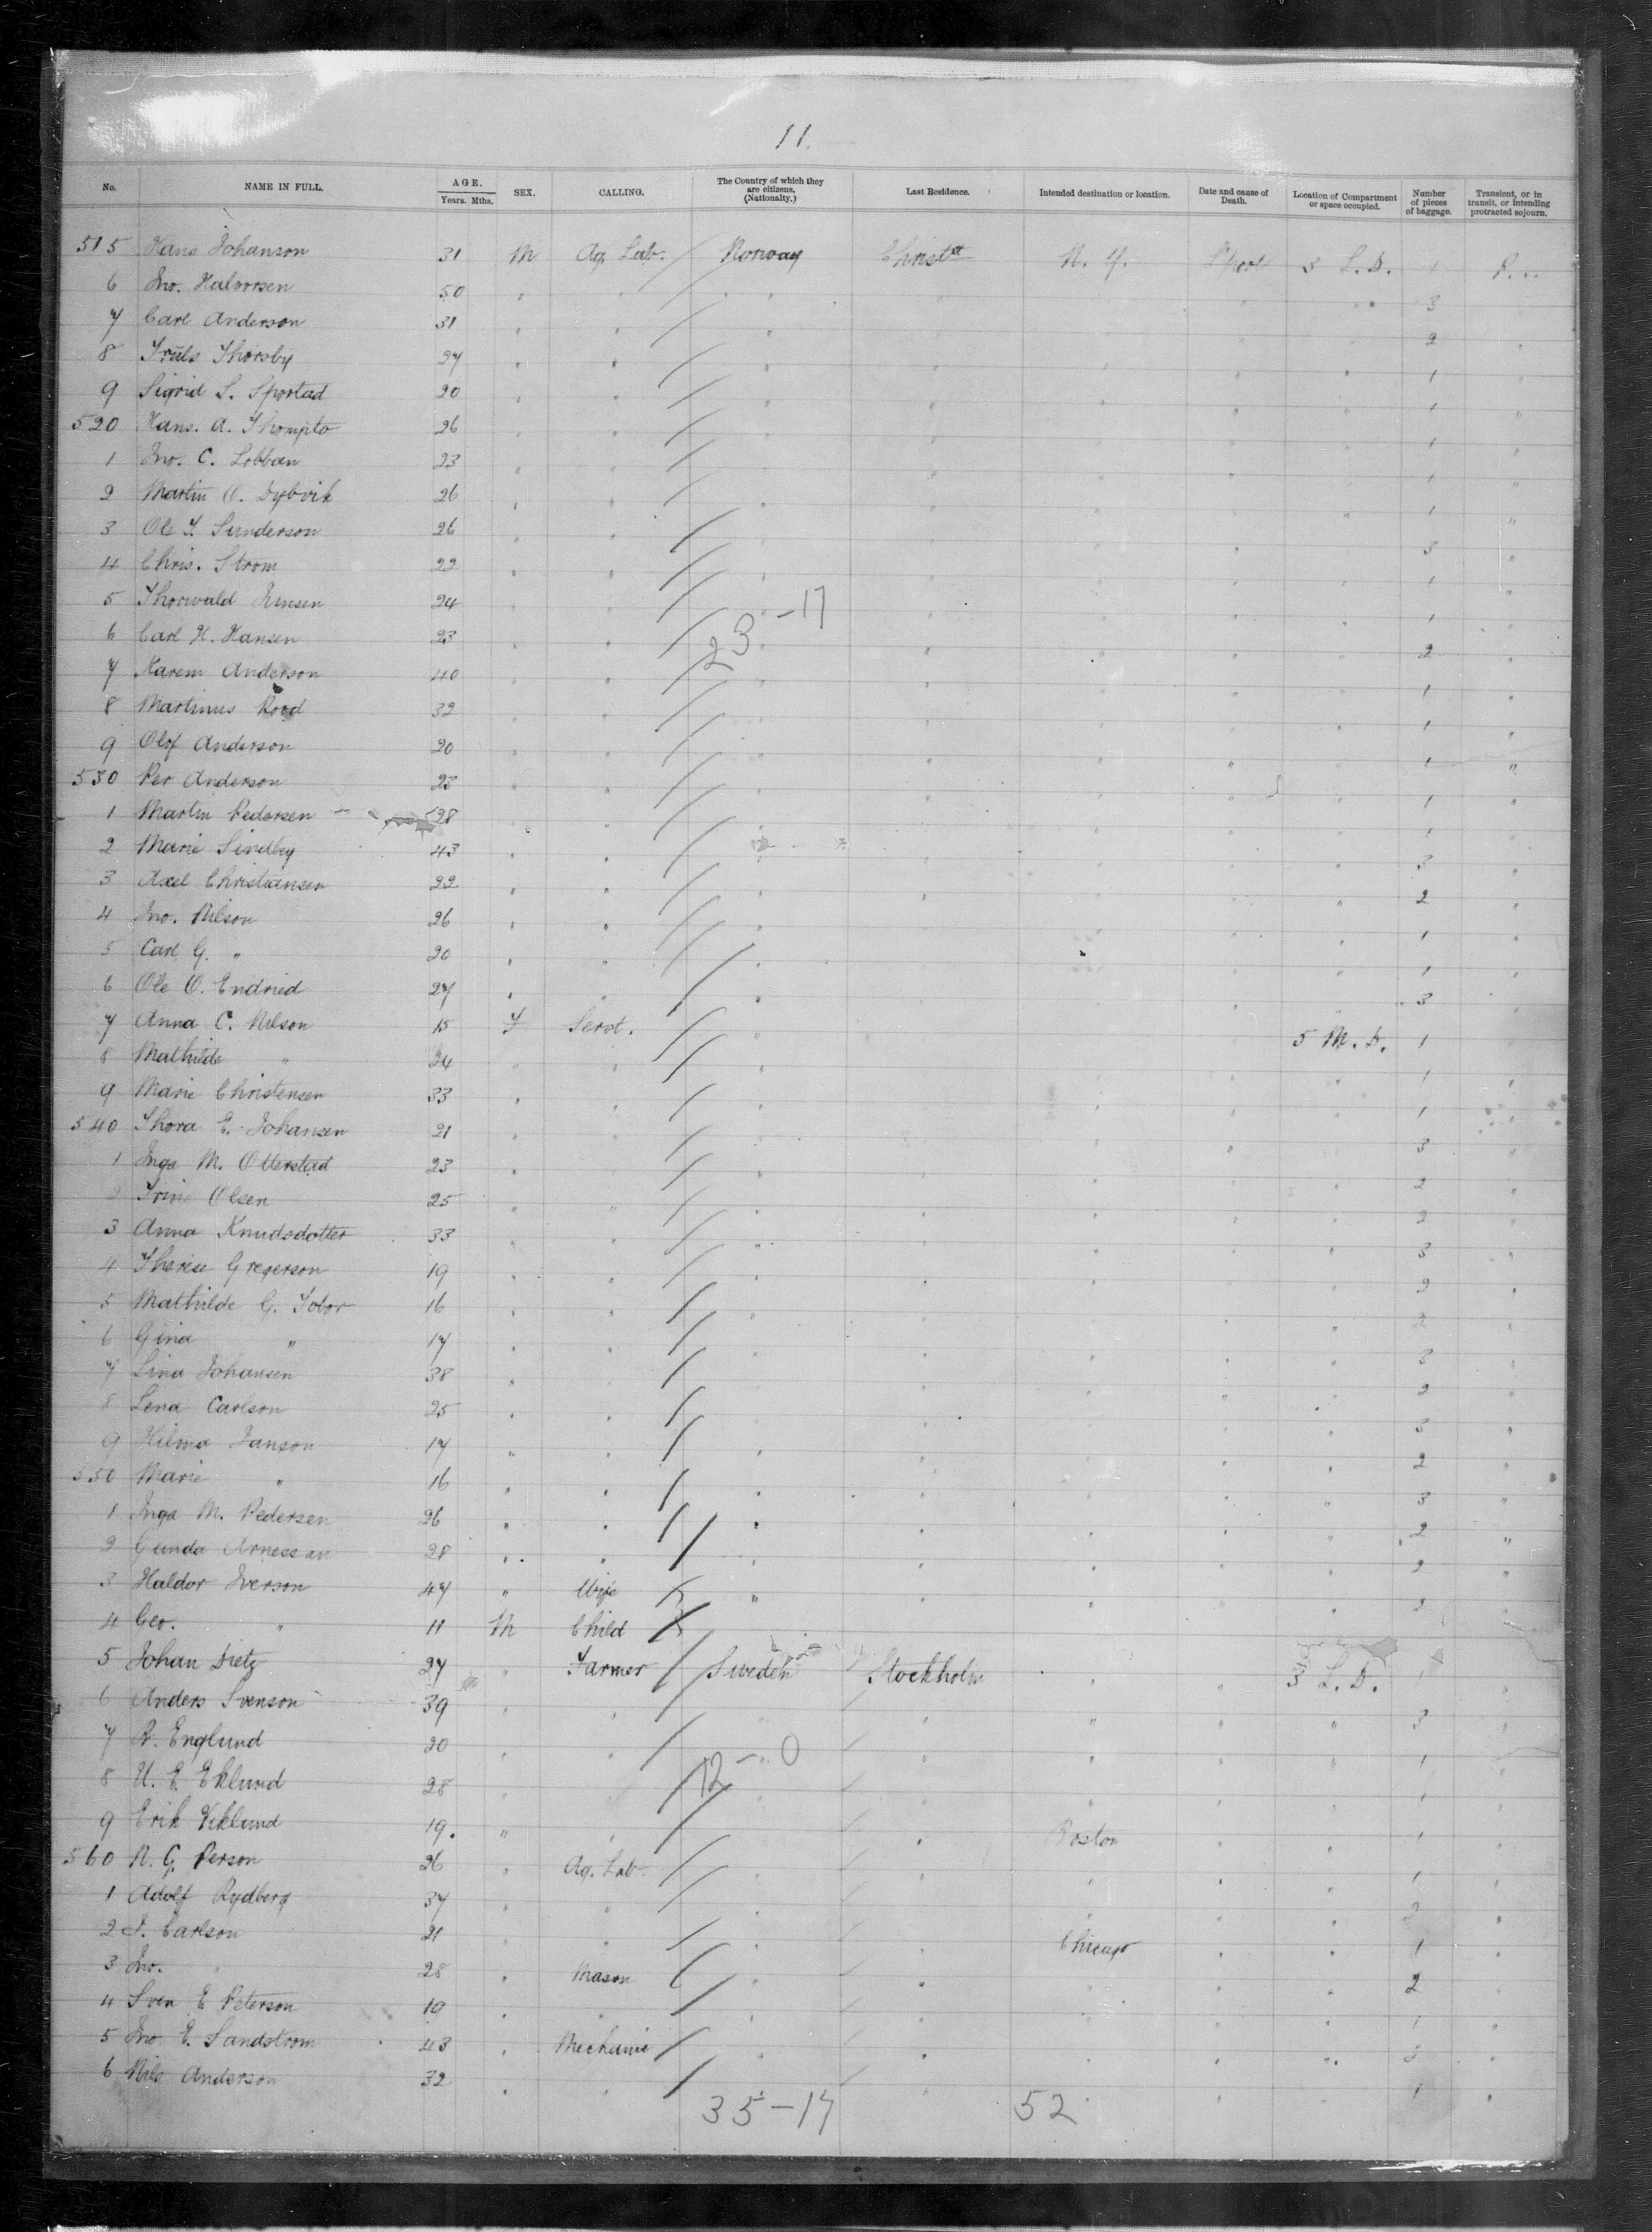 11.
No. NAME IN FULL. AGE. Years. Mths. SEX. CALLING. The Country of which they are citizens. (Nationalty.) Last Residence. Intended destination or location. Date and cause of Death. Location of Compartment or space occupied. Number of pieces of baggage. Transient, or in transit, or intending protracted sojourn.
515 Hans Johanson 31 M Ag. Lab. Norway Christa N. Y. 3 L. D. 1
6 Jno. Halvorsen 50 " " " 3
7 Carl Anderson 31 " " " 2 "
8 Truls Thorsby 27 " " " 1 "
9 Sigrid S. Sportad 20 " " " 1 "
520 Hans. A. Thompto 26 " " " 1 "
1 Jno. C. Lobban 23 " " " 1 "
2 Martin O. Dybvik 26 " " " 1 "
3 Ole T. Sunderson 26 " " " 3 "
4 Chris. Strom 22 " " " 1 "
5 Thorwald Jensen 24 " " " 1 "
23 - 17
6 Carl H. Hansen 23 " " " 2 "
7 Karem Anderson 40 " " " 1 "
8 Martinus Rood 32 " " " 1 "
9 Olof Anderson 20 " " " 1 "
530 Per Anderson 23 " " " 1 "
1 Martin Pedersen 28 " " " 1 "
2 Marie Sindby 43 " " " 3 "
3 Axel Christiansen 22 " " " 2 "
4 Jno. Nilson 26 " " " 1 "
5 Carl G. " 20 " " " 1 "
6 Ole O. Endried 27 " " " 3 "
7 Anna C. Nilson 15 F Servt. " 5 M. D. 1 "
8 Mathilde " 24 " " " 1 "
9 Marie Christensen 33 " " " 1 "
540 Thora E. Johansen 21 " " " 3 "
1 Inga M. Otterstad 23 " " " 2 "
2 Trine Olsen 25 " " " 2 "
3 Anna Knudsdotter 33 " " " 3 "
4 Therese Gregerson 19 " " " 2 "
5 Mathilde G. Tobor 16 " " " 2 "
6 Gina " 17 " " " 3 "
7 Lina Johansen 38 " " " 2 "
8 Lena Carlson 25 " " " 3 "
9 Hilma Janson 17 " " " 2 "
550 Marie " 16 " " " 3 "
1 Inga M. Pedersen 26 " " " 2 "
2 Gunda Arnessan 28 " " " 2 "
3 Haldor Iverson 47 " Wife " 2 "
4 Geo. " 11 M Child
5 Johan Dietz 27 " Farmer Sweden Stockholm " " 3 L. D. 1 "
6 Anders Svenson 39 " " " " " " " 3 "
7 R. Englund 20 " " " " " " " 1 "
12 - 0
8 U. E. Eklund 28 " " " " " " 1 "
9 Erik Viklund 19. " " " Boston " " 1 "
560 N. G. Person 26 " Ag. Lab. " " " " 1 "
1 Adolf Rydberg 37 " " " " " " 2 "
2 J. Carlson 21 " " " " Chicago " " 1 "
3 Jno. " 28 " Mason " " " " " 2 "
4 Sven E Peterson 19 " " " " " " 1 "
5 Jno E. Sandstrom 43 " Mechanic " " " " " 3 "
6 Nils Anderson 32 " " " " " 1 "
35 - 17 52